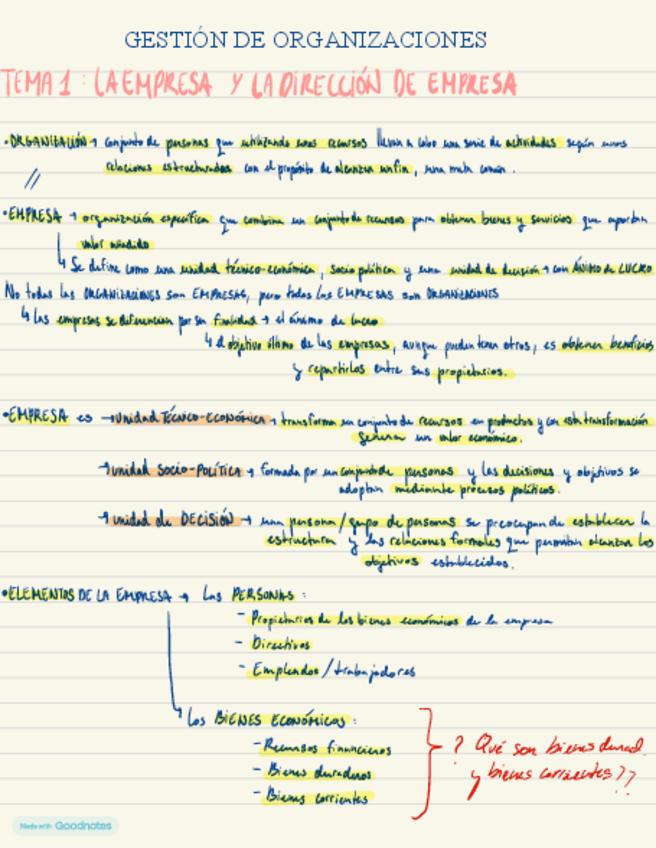 GESTIÓN DE ORGANIZACIONES
TEMA 1 : LA EMPRESA Y LA DIRECCIÓN DE EMPRESA
• ORGANIZACIÓN → conjunto de personas que utilizando unos recursos llevan a cabo una serie de actividades según unas
relaciones estructuradas con el propósito de alcanzar un fin, una meta común.
•EMPRESA → organización específica que combina un conjunto de recursos para obtener bienes y servicios que aportan
valor añadido
↳ Se define como una unidad técnico-económica, socio política y una unidad de decisión → con ÁNIMO de LUCRO
No todas las ORGANIZACIONES son EMPRESAS, pero todas las EMPRESAS son ORGANIZACIONES
↳ Las empresas se diferencian por su finalidad → el ánimo de lucro
↳ el objetivo último de las empresas, aunque pueden tener otros, es obtener beneficios
y repartirlos entre sus propietarios.
•EMPRESA es → UNIDAD TÉCNICO-ECONÓMICA → transforma un conjunto de recursos en productos y con esta transformación
genera un valor económico.
→ unidad SOCIO-POLÍTICA → formada por un conjunto de personas y las decisiones y objetivos se
adoptan mediante procesos políticos.
→ unidad de DECISIÓN → una persona/grupo de personas se preocupan de establecer la
estructura y las relaciones formales que permitan alcanzar los
objetivos establecidos.
•ELEMENTOS DE LA EMPRESA → Las PERSONAS :
- Propietarios de los bienes económicos de la empresa
- Directivos
- Empleados/trabajadores
↳ Los BIENES ECONÓMICOS :
- Recursos financieros
- Bienes duraderos
- Bienes corrientes
? Qué son bienes durad.
y bienes corrientes??
Made with Goodnotes